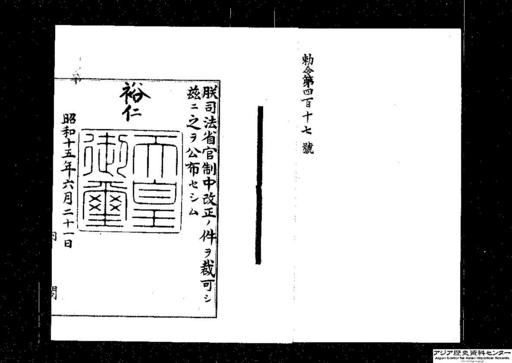 勅令第四百十七號
朕司法省官制中改正ノ件ヲ裁可シ
茲ニ之ヲ公布セシム
裕仁
天皇
御璽
昭和十五年六月二十一日
内閣
アジア歴史資料センター
Japan Center for Asian Historical Records